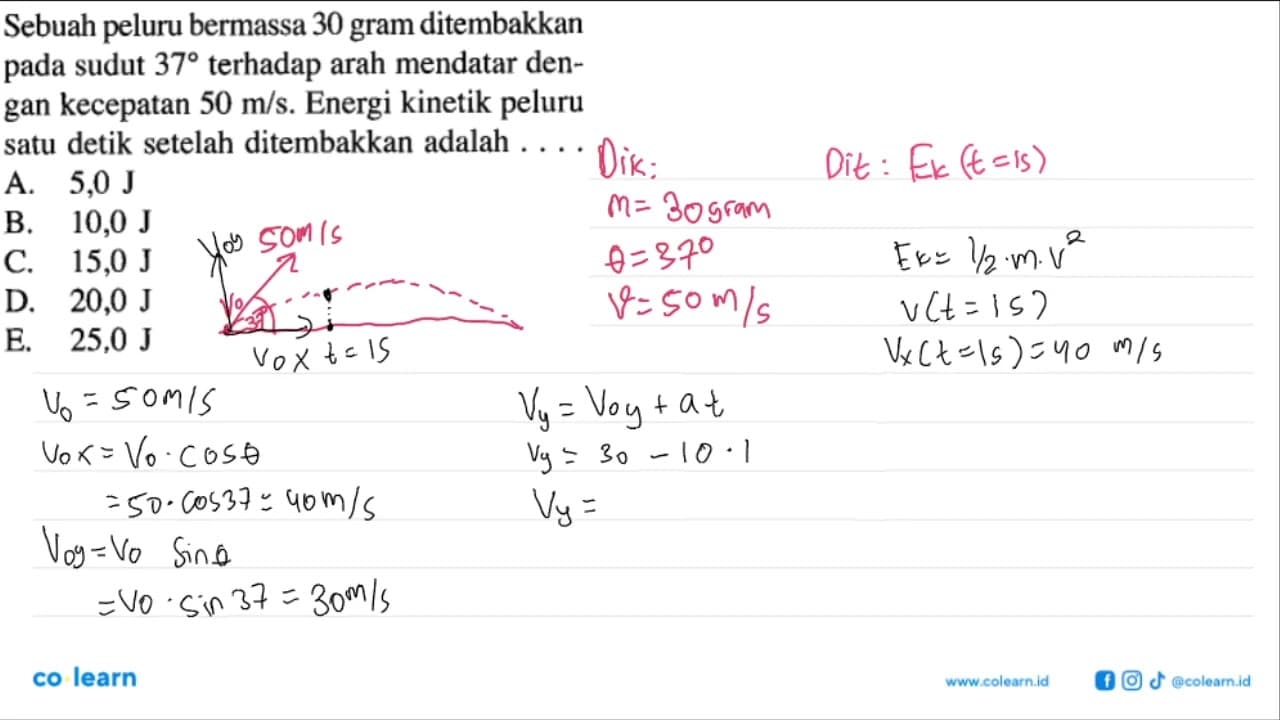 Sebuah peluru bermassa 30 gram ditembakkan
pada sudut 37° terhadap arah mendatar den-
gan kecepatan 50 m/s. Energi kinetik peluru
satu detik setelah ditembakkan adalah . . . .
A. 5,0 J
B. 10,0 J
C. 15,0 J
D. 20,0 J
E. 25,0 J
Voy 50m/s
Vo
37
Vox t=1s
Dik:
m= 30gram
θ=37°
v=50m/s
Dit : Ek (t=1s)
Ek= 1/2.m.v²
v(t=1s)
Vx(t=1s)=40 m/s
Vo = 50m/s
Vox=Vo.cosθ
=50.cos37=40m/s
Voy=Vo sinθ
=Vo.sin37=30m/s
Vy=Voy+at
Vy= 30 -10.1
Vy=
co learn
www.colearn.id
@colearn.id